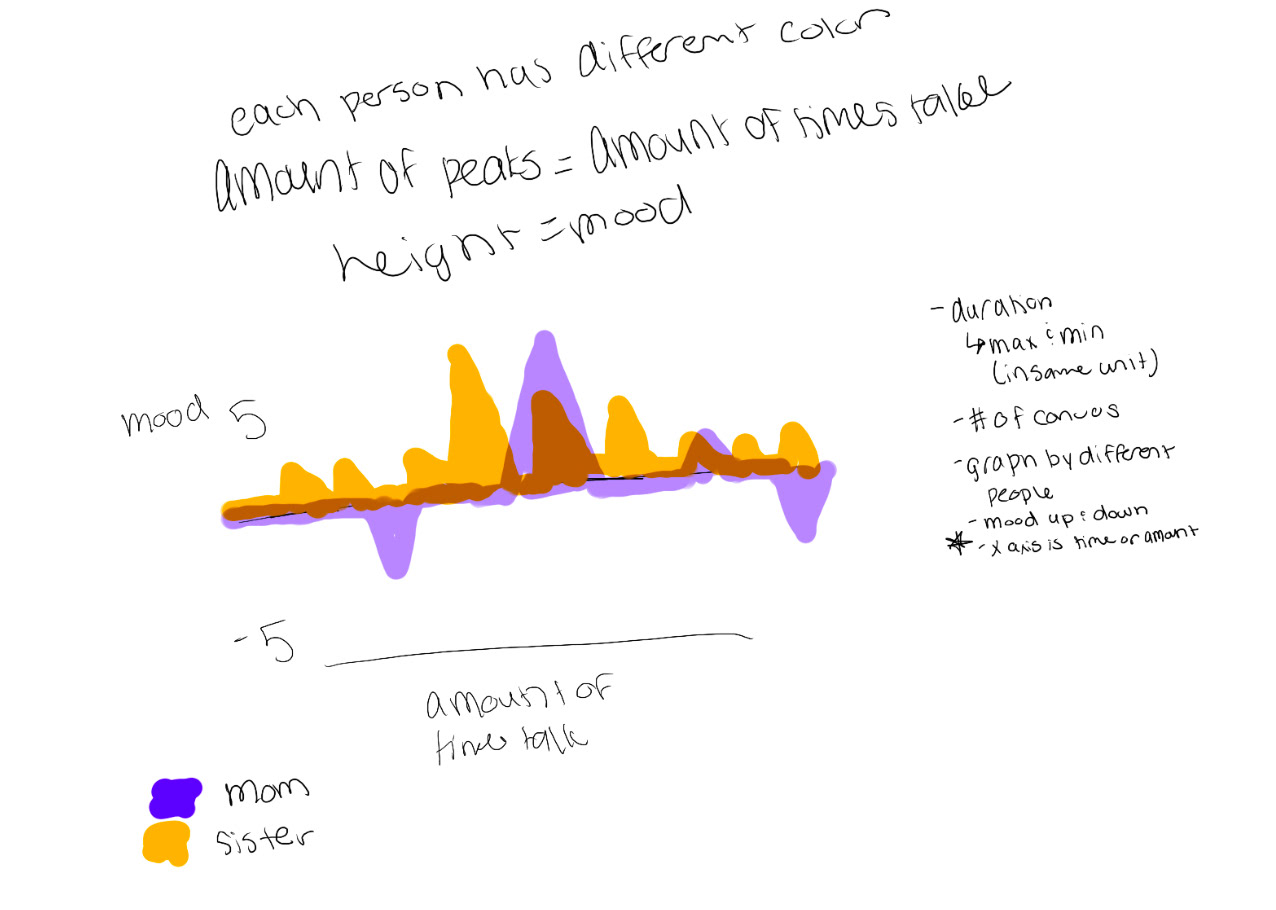 each person has different color
amount of peaks = amount of times talk
height = mood
mood 5
-5
amount of
time talk
mom
sister
- duration
↳ max & min
(in same unit)
- # of convos
- graph by different
people
- mood up & down
★ - x axis is time or amount